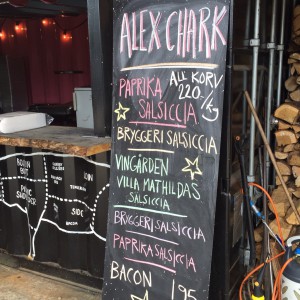 ALEX CHARK
PAPRIKA
SALSICCIA
ALL KORV
220:-/kg
BRYGGERI SALSICCIA
VINGÅRDEN
VILLA MATHILDAS
SALSICCIA
BRYGGERI SALSICCIA
PAPRIKA SALSICCIA
BACON 195
SIDE